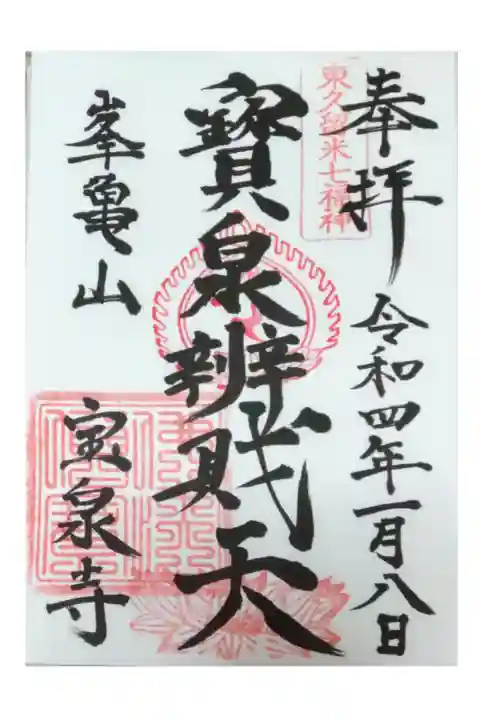 奉拝
東久留米七福神
令和四年一月八日
寳泉辨財天
峯亀山
宝泉寺